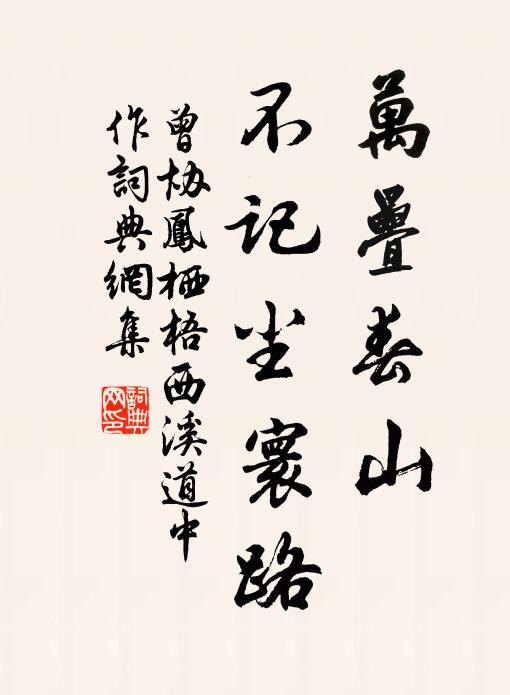 萬疊春山
不記尘寰路
曾协鳳栖梧西溪道中
作詞典網集
詞典
网印